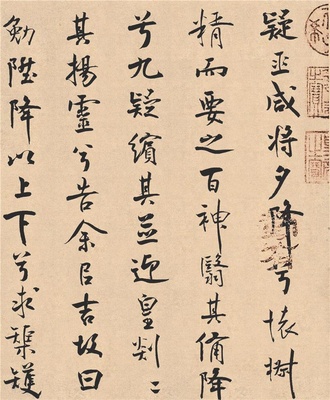 疑巫咸将夕降兮懷椒
糈而要之百神翳其備降
兮九疑繽其並迎皇剡〻
其揚靈兮告余㠯吉故曰
勉陞降以上下兮求榘矱